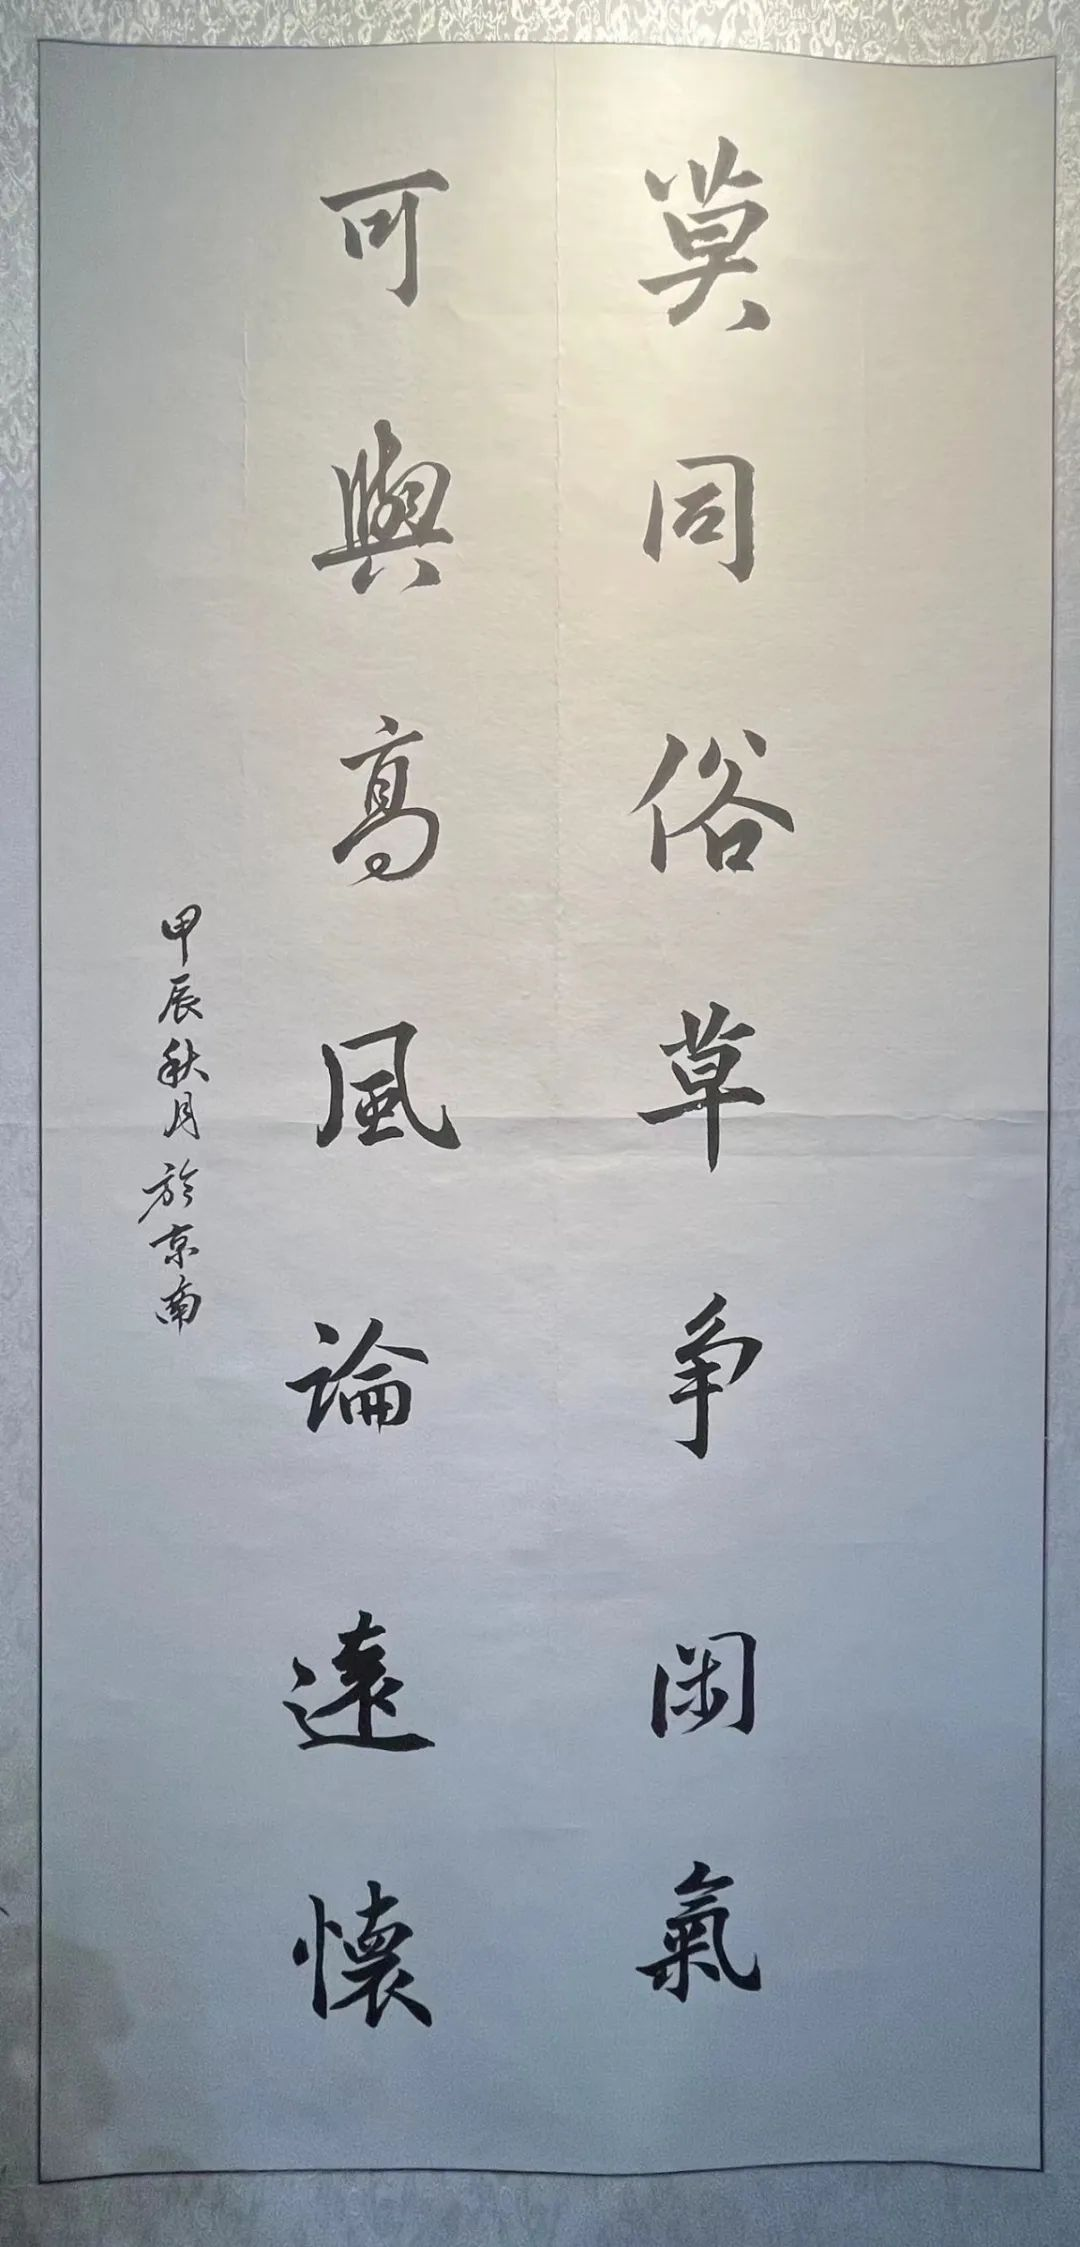 莫同俗草争閑氣
可與高風論遠懷
甲辰秋月於京南